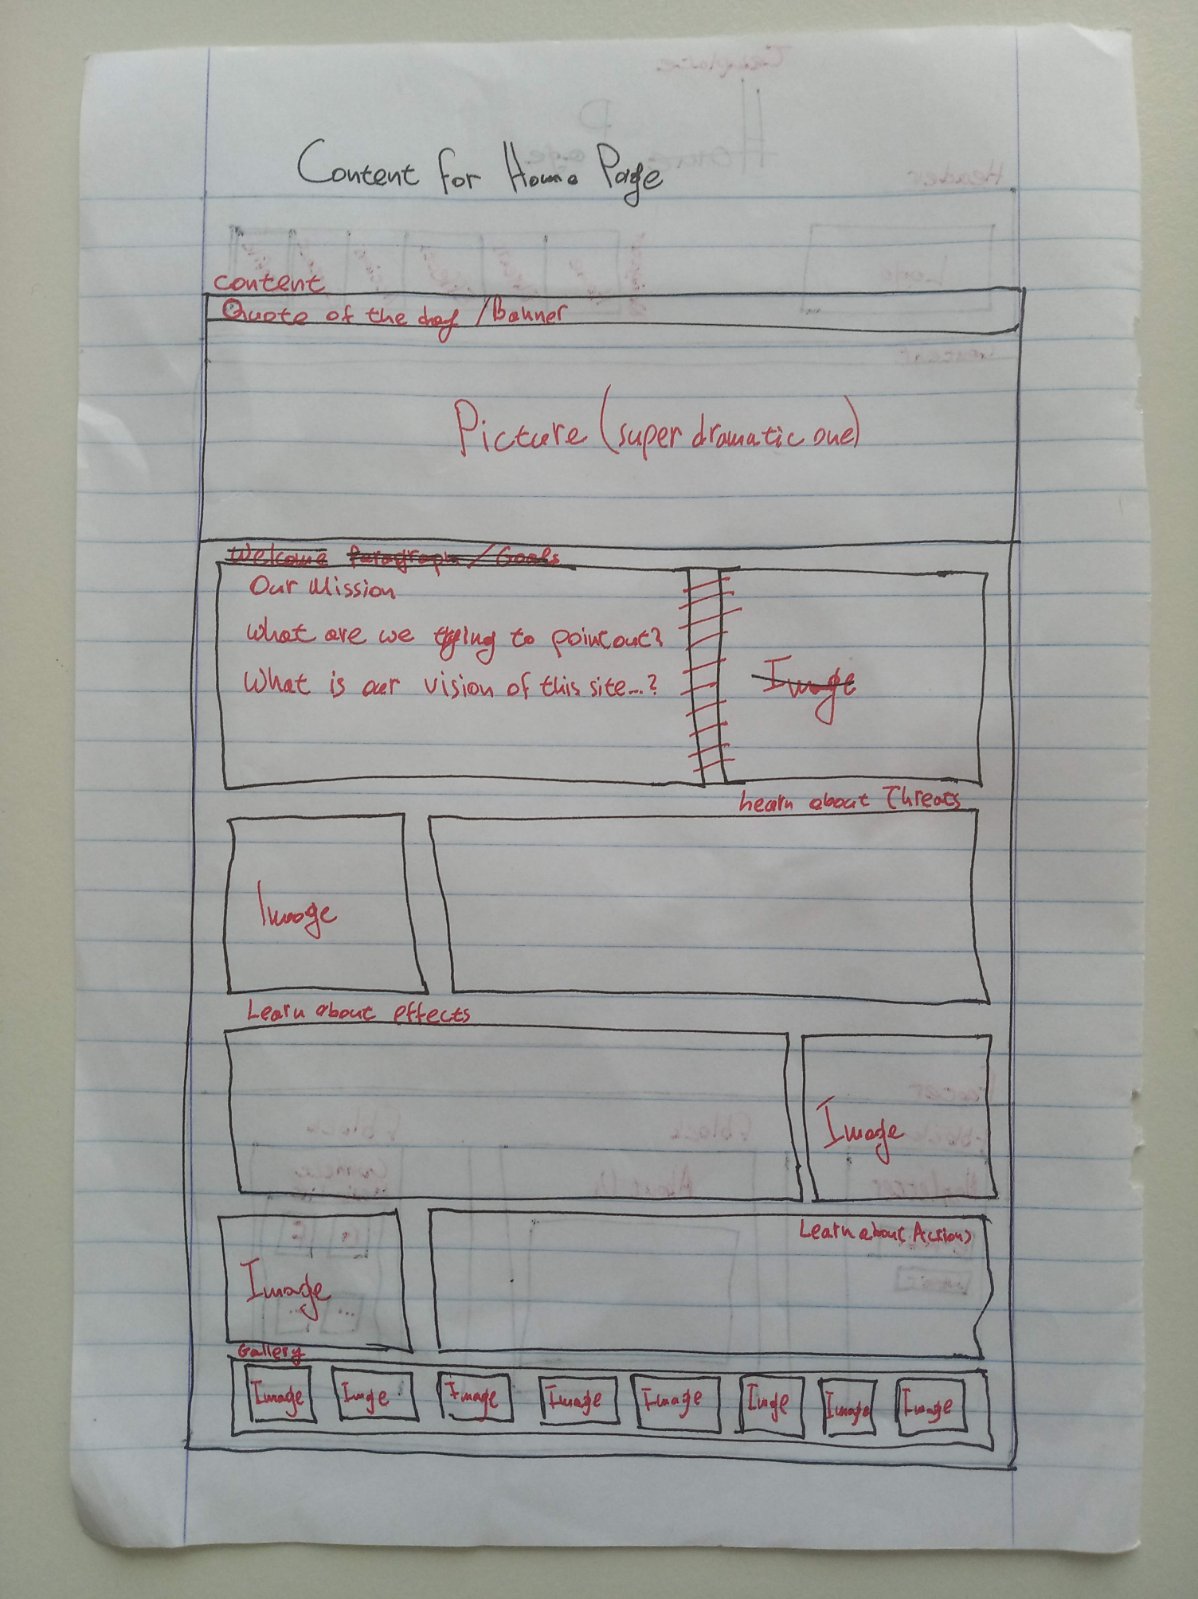 Content for Home Page
content
Quote of the day / Banner
Picture (super dramatic one)
Welcome Paragraph / Goals
Our Mission
What are we trying to point out?
What is our vision of this site...?
Image
Learn about Threats
Image
Learn about effects
Image
Learn about (Action)
Image
Gallery
Image Imge Image Image Image Imge Image Image